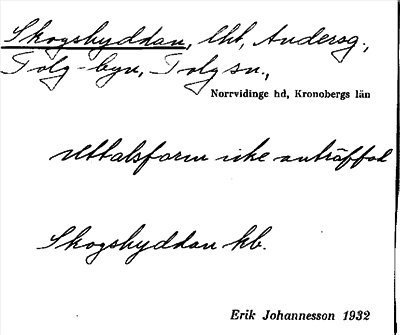 Skogshyddan, lht, Andersg.,
Tolg-byn, Tolg sn.,
Norrvidinge hd, Kronobergs län
Uttalsform icke anträffad
Skogshyddan kb.
Erik Johannesson 1932